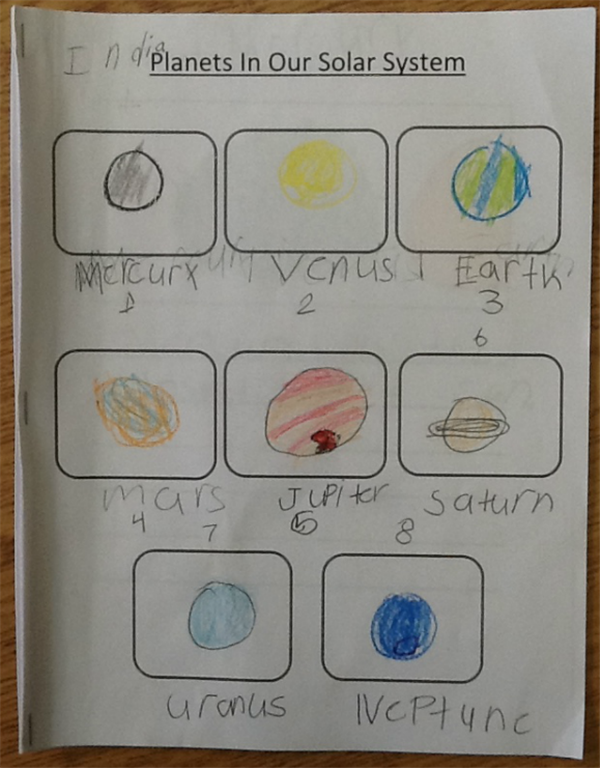 India
Planets In Our Solar System
Mercury Venus Earth
1 2 3
6
Mars Jupiter Saturn
4 5
7 8
Uranus Neptune